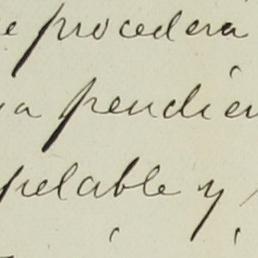 e procedera
a pendien
pelable y